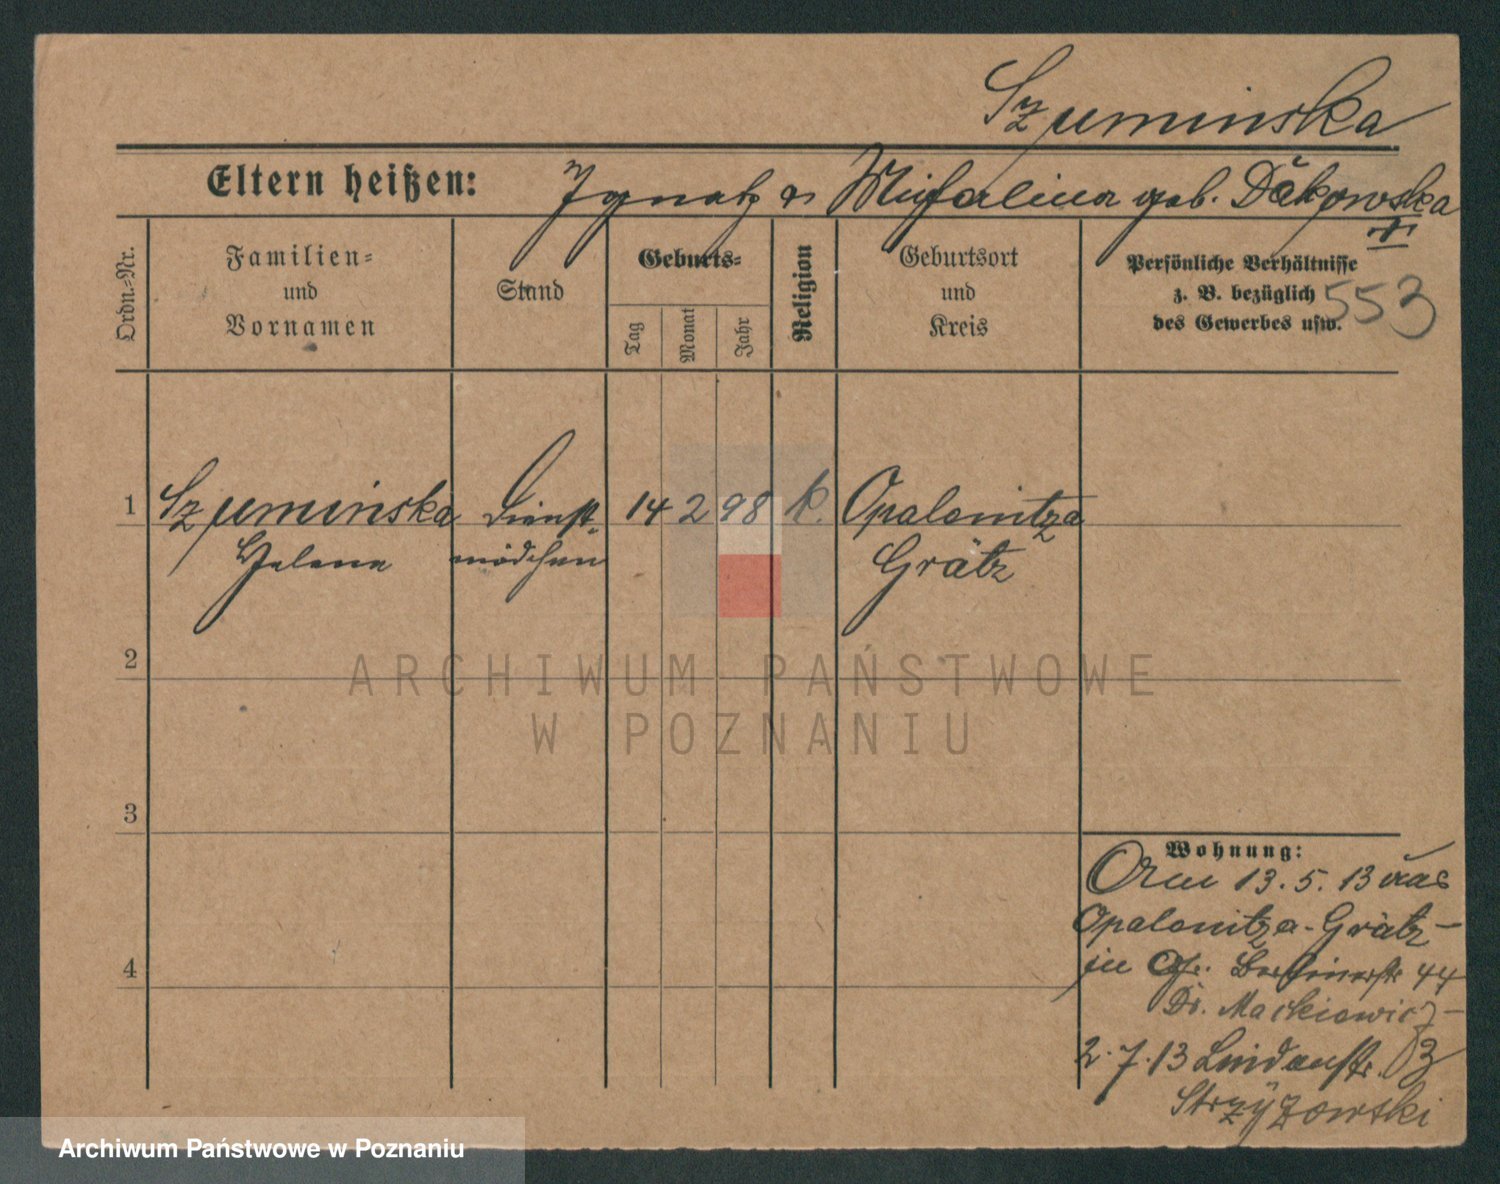 Szuminska
Eltern heißen: Ignatz & Michalina geb. Dākowska
Ordn.=Nr.
Familien=
und
Vornamen
Stand
Geburts=
Tag
Monat
Jahr
Religion
Geburtsort
und
Kreis
Persönliche Verhältnisse
z. B. bezüglich
des Gewerbes usw.
553
1 Szumińska Dienst- 14 2 98 k. Opalenitza
Helene mädchen Grätz
2
ARCHIWUM PAŃSTWOWE
W POZNANIU
3
Wohnung:
13.5.13 aus
Opalenitza-Grätz-
4
in Berlinerstr 44
Dr. Mackiewicz-
2.7.13 Lindenstr. 3
Strzyżowski
Archiwum Państwowe w Poznaniu